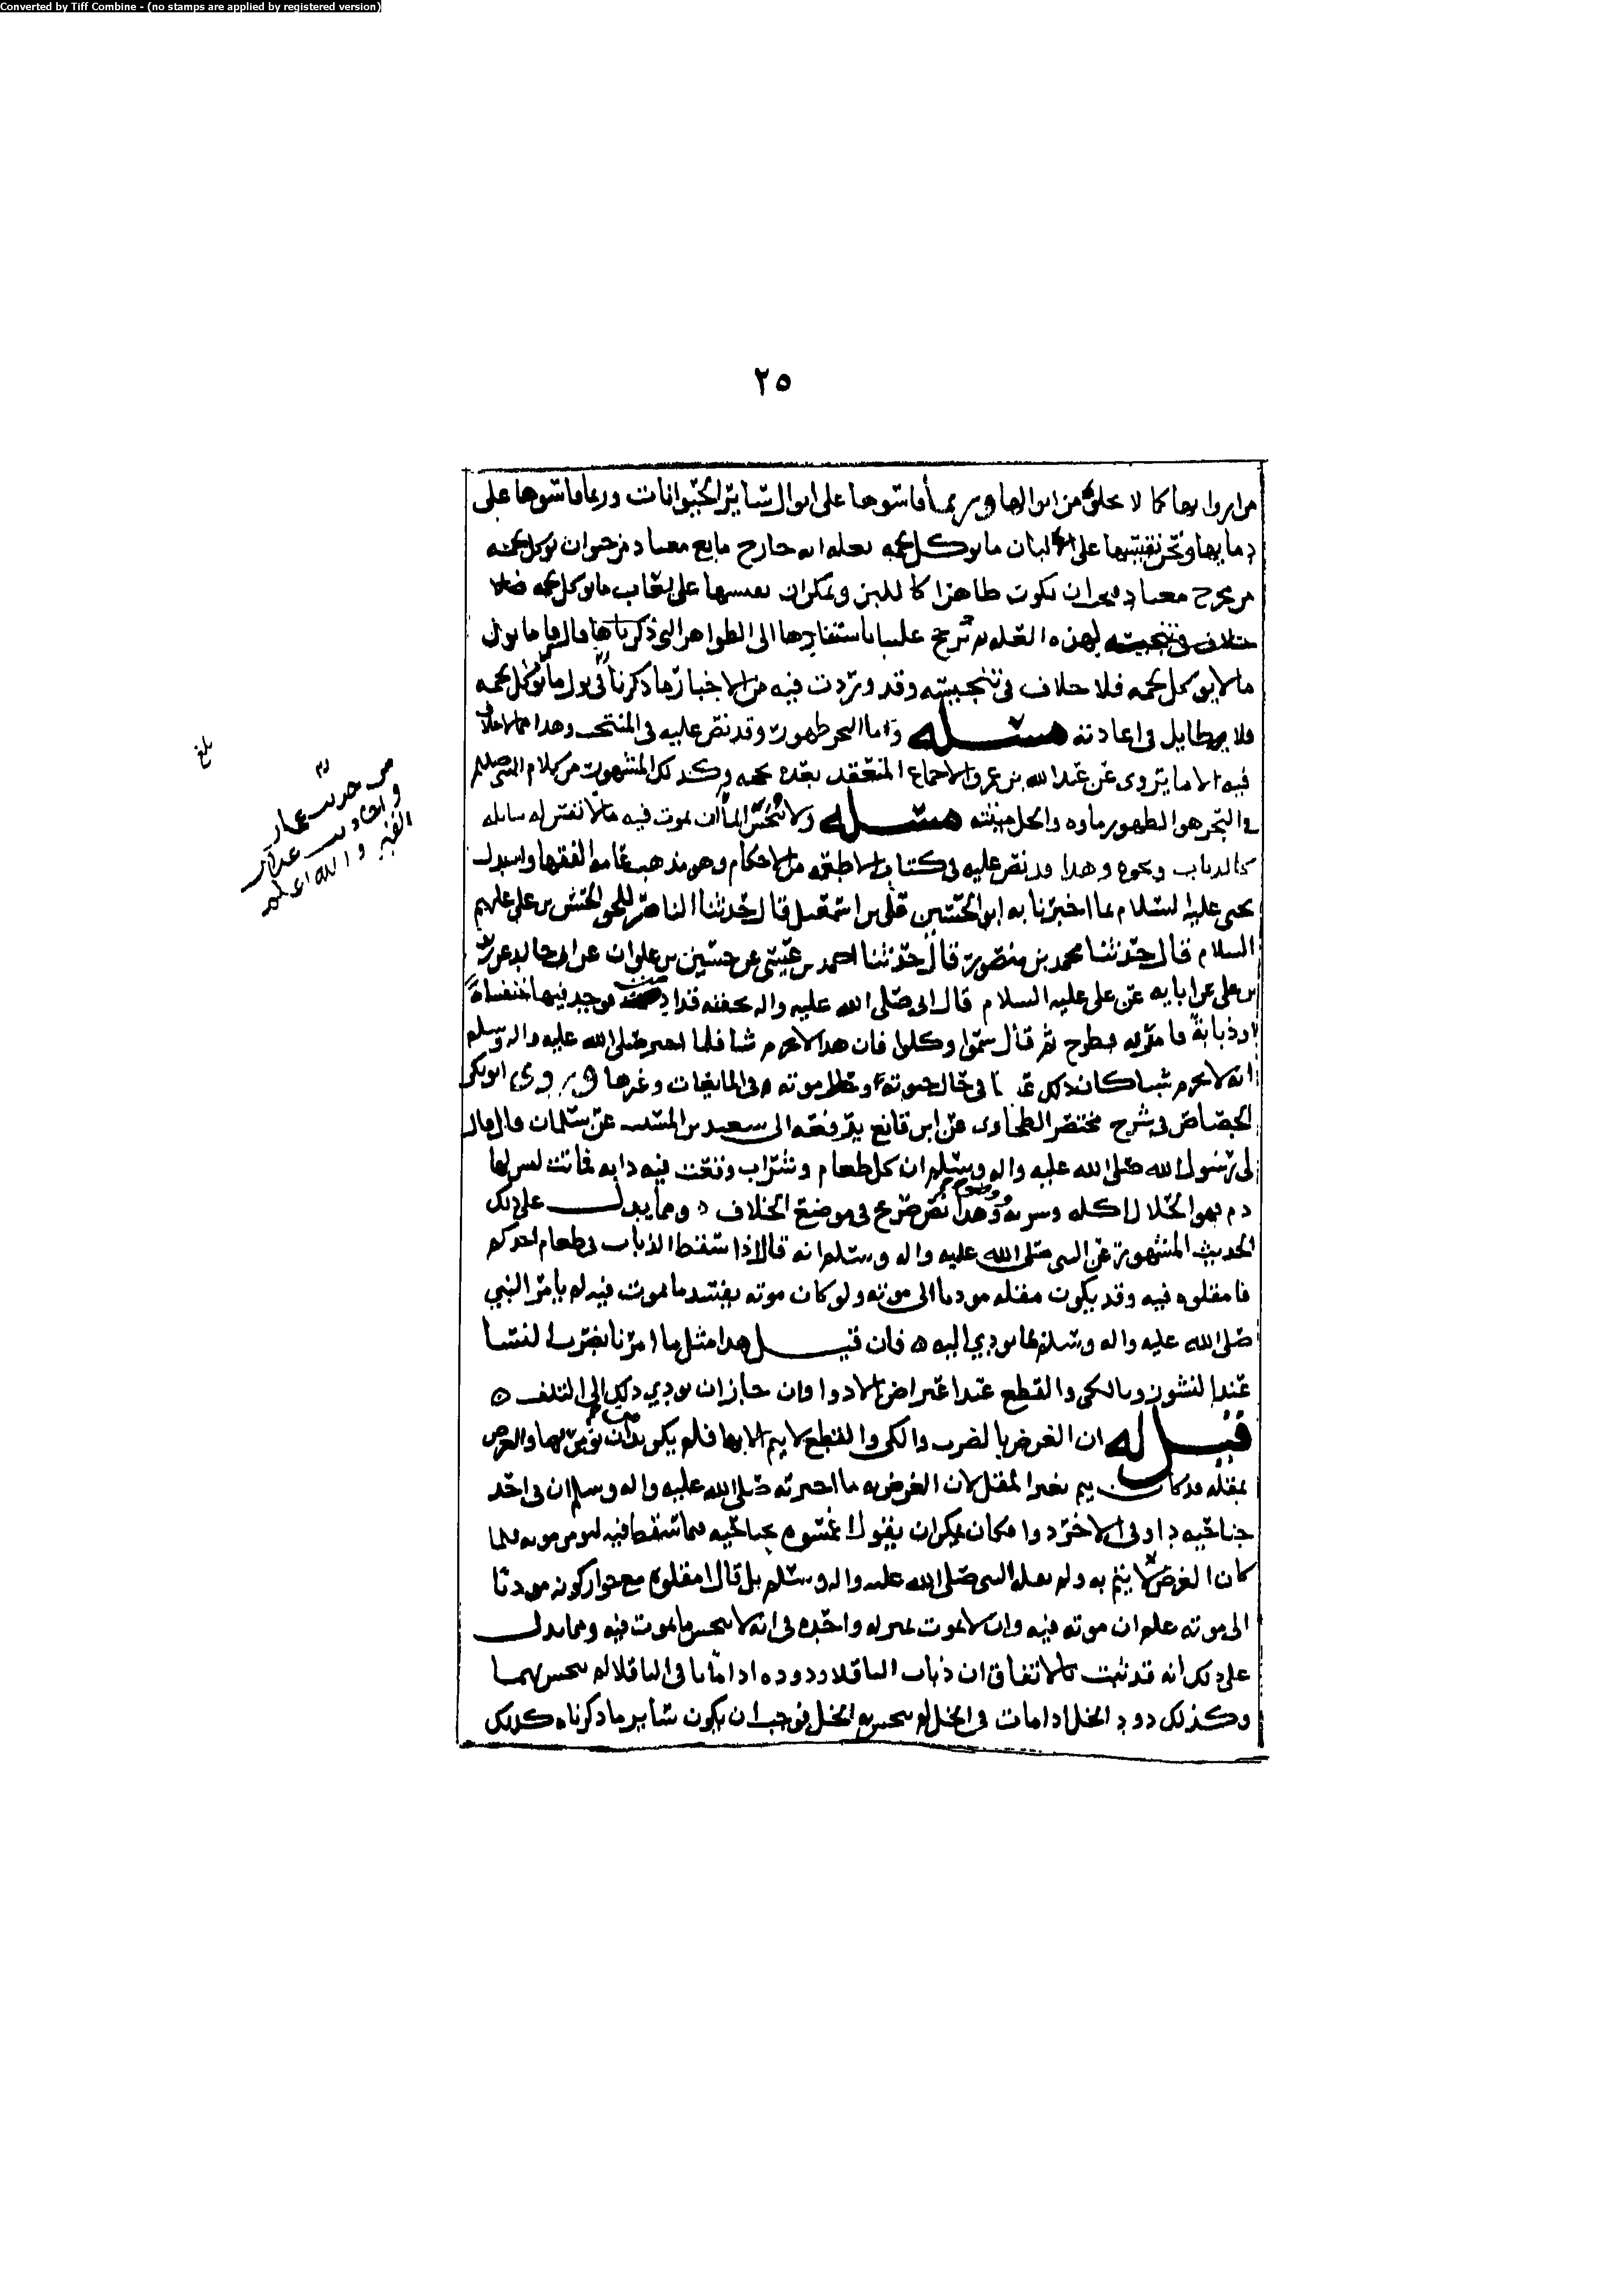 Converted by Tiff Combine - (no stamps are applied by registered version)
٢٥
من ابوالها وربما قاسوها على ابوال سائر الحيوانات وربما قاسوها على
دمايها ونحن نقيسها على الالبان ما يوكل لحمه بعلة انه خارج مايع معتاد من حيوان يوكل لحمه
من مخرج معتاد فيجب ان يكون طاهرا كاللبن ويمكن ان نقيسها على لعاب ما يوكل لحمه فلا
خلاف في تنجيسه لهذه العلة ثم ترجح علتنا باستنادها الى الظواهر التي ذكرناها قال فاما بول
ما لا يوكل لحمه فلا خلاف في تنجيسه وقد وردت فيه من الاخبار ما ذكرنا في بول ما يوكل لحمه
فلا طايل في اعادته مسئله واما البحر طهور وقد نص عليه في المنتخب وهذا مما لا خلاف
فيه الا ما يروى عن عبد الله بن عمر والاجماع المنعقد بعده يحجه وكذلك المشهور من كلام النبي صلعم
في البحر هو الطهور ماوه والحل ميتته مسئله ولا ينجس الما ان يموت فيه ما لا نفس له سايله
كالذباب ونحوه وهذا قد نص عليه في كتاب الاطعمه من الاحكام وهو مذهب عامه الفقها واستدل
يحيى عليه السلام بما اخبرنا به ابو الحسين علي بن اسمعيل قال حدثنا الناصر للحق الحسن بن علي عليهم
السلام قال حدثنا محمد بن منصور قال حدثنا احمد بن عيسى عن حسين بن علوان عن ابي خالد عن زيد
بن علي عن ابايه عن علي عليه السلام قال اتي صلى الله عليه واله بجفنه قد ادمت فوجد فيها خنفساة
او ذبابة فامر به فطرح ثم قال سموا وكلوا فان هذا لا يحرم شيا فلما اخبر صلى الله عليه واله وسلم
انه لا يحرم شيا كان ذلك في حال حيوته وحال موته وفي المايعات وغيرها وروى ابو بكر
الجصاص في شرح مختصر الطحاوى عن ابن قانع يرفعه الى سعيد بن المسيب عن سلمان قال قال
لي رسول الله صلى الله عليه واله وسلم ان كل طعام وشراب وقعت فيه دابه فماتت ليس لها
دم فهو الحلال اكله وشربه ووضوءه وهذا نص صريح في موضع الخلاف ومما يدل على ذلك
الحديث المشهور عن النبي صلى الله عليه واله وسلم انه قال اذا سقط الذباب في طعام احدكم
فامقلوه فيه وقد يكون مقله موديا الى موته ولو كان موته يفسد ما يموت فيه لم يامر النبي
صلى الله عليه واله وسلم بما يودي اليه فان قيل هذا مثل ما امرنا بضرب النسا
عند النشوز وبالكي والقطع عند اعتراض الادوا وان جاز ان يودي ذلك الى التلف
قيل له ان الغرض بالضرب والكي والقطع لا يتم الا بها فلم يكن بد من ان نؤمر بها والغرض
بمقله قد كان يتم بغير المقل لان الغرض به ما اخبر به صلى الله عليه واله وسلم ان في احد
جناحيه دا وفي الاخر دوا فكان يمكن ان يقول غمسوه بجناحيه فيما سقط فيه ليومن موته فلما
كان الغرض لا يتم به ولم يقله النبي صلى الله عليه واله وسلم بل قال امقلوه مع جواز كونه موديا
الى موته علم ان موته فيه وان لا يموت بمنزله واحده في انه لا ينجس ما يموت فيه ومما يدل
على ذلك انه قد ثبت بالاتفاق ان ذباب الباقلا ودوده اذا ماتا في الباقلا لم ينجس بهما
وكذلك دود الخل اذا مات في الخل لم ينجس به الخل فوجب ان يكون سائر ما ذكرناه كذلك
بلغ
والله اعلم